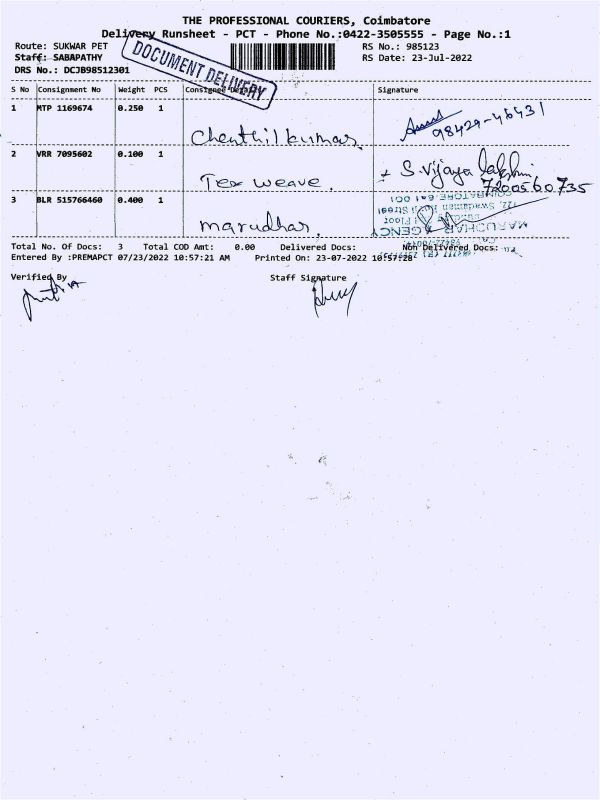 THE PROFESSIONAL COURIERS, Coimbatore
Delivery Runsheet - PCT - Phone No.:0422-3505555 - Page No.:1
Route: SUKWAR PET
RS No.: 985123
Staff: SABAPATHY
RS Date: 23-Jul-2022
DRS No.: DCJB98512301
DOCUMENT DELIVERY
S No Consignment No Weight PCS Consignee Details Signature
1 MTP 1169674 0.250 1
Chenthil kumar.
98429-46431
2 VRR 7095602 0.100 1
Tex weave.
S. Vijaya lakshmi
7200560735
3 BLR 515766460 0.400 1
marudhar.
MARUDHAR AGENCY
COIMBATORE-641 001
Total No. Of Docs: 3 Total COD Amt: 0.00 Delivered Docs: Non Delivered Docs:
Entered By :PREMAPCT 07/23/2022 10:57:21 AM Printed On: 23-07-2022 10:57:28
Verified By
Staff Signature